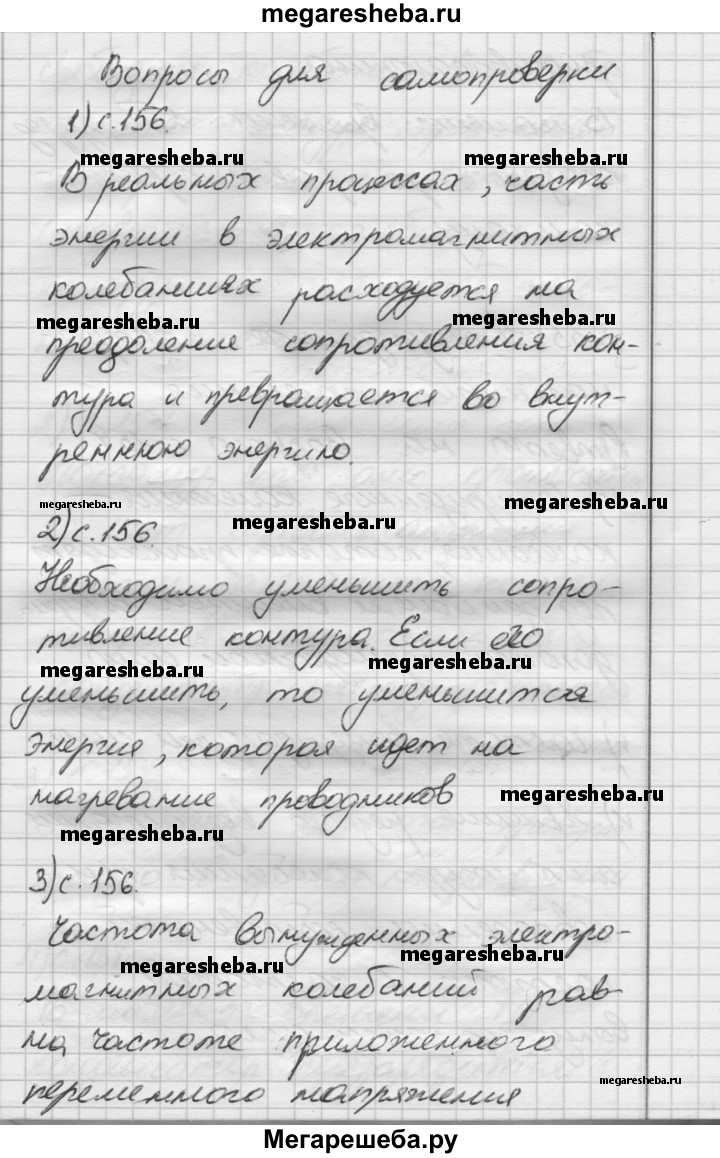 megaresheba.ru
Вопросы для самопроверки
1) с.156.
megaresheba.ru megaresheba.ru
В реальных процессах, часть
энергии в электромагнитных
колебаниях расходуется на
megaresheba.ru megaresheba.ru
преодоление сопротивления кон-
тура и превращается во внут-
реннюю энергию.
megaresheba.ru megaresheba.ru megaresheba.ru
2) с.156.
Необходимо уменьшить сопро-
тивление контура. Если его
megaresheba.ru megaresheba.ru
уменьшить, то уменьшится
энергия, которая идет на
нагревание проводников
megaresheba.ru
megaresheba.ru
3) с.156.
Частота вынужденных электро-
megaresheba.ru megaresheba.ru
магнитных колебаний рав
на частоте приложенного
переменного напряжения
megaresheba.ru
Мегарешеба.ру